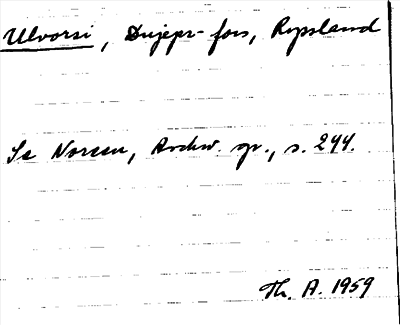 Ulvorsi, Dnjepr-fors, Ryssland
Se Noreen, Aschw. gr., s. 244.
Th. A. 1959